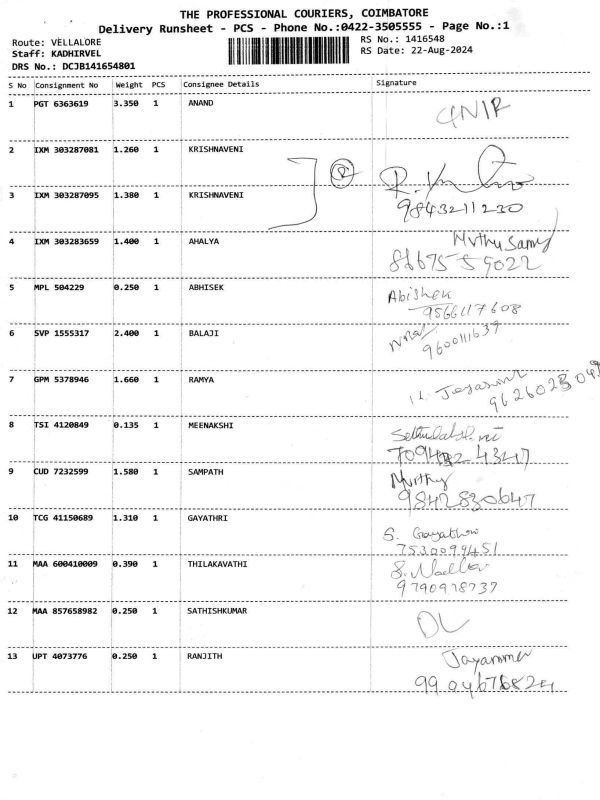 THE PROFESSIONAL COURIERS, COIMBATORE
Delivery Runsheet - PCS - Phone No.:0422-3505555 - Page No.:1
Route: VELLALORE
RS No.: 1416548
Staff: KADHIRVEL
RS Date: 22-Aug-2024
DRS No.: DCJB141654801
S No Consignment No Weight PCS Consignee Details Signature
1 PGT 6363619 3.350 1 ANAND
2 IXM 303287081 1.260 1 KRISHNAVENI
3 IXM 303287095 1.380 1 KRISHNAVENI
9843211230
4 IXM 303283659 1.400 1 AHALYA Muthu Samy
86675 59022
5 MPL 504229 0.250 1 ABHISEK Abishek
9566117608
6 SVP 1555317 2.400 1 BALAJI
9600111639
7 GPM 5378946 1.660 1 RAMYA
8 TSI 4120849 0.135 1 MEENAKSHI
9 CUD 7232599 1.580 1 SAMPATH Murthy
9842830647
10 TCG 41150689 1.310 1 GAYATHRI
7530099451
11 MAA 600410009 0.390 1 THILAKAVATHI
9790978737
12 MAA 857658982 0.250 1 SATHISHKUMAR DL
13 UPT 4073776 0.250 1 RANJITH Jayammer